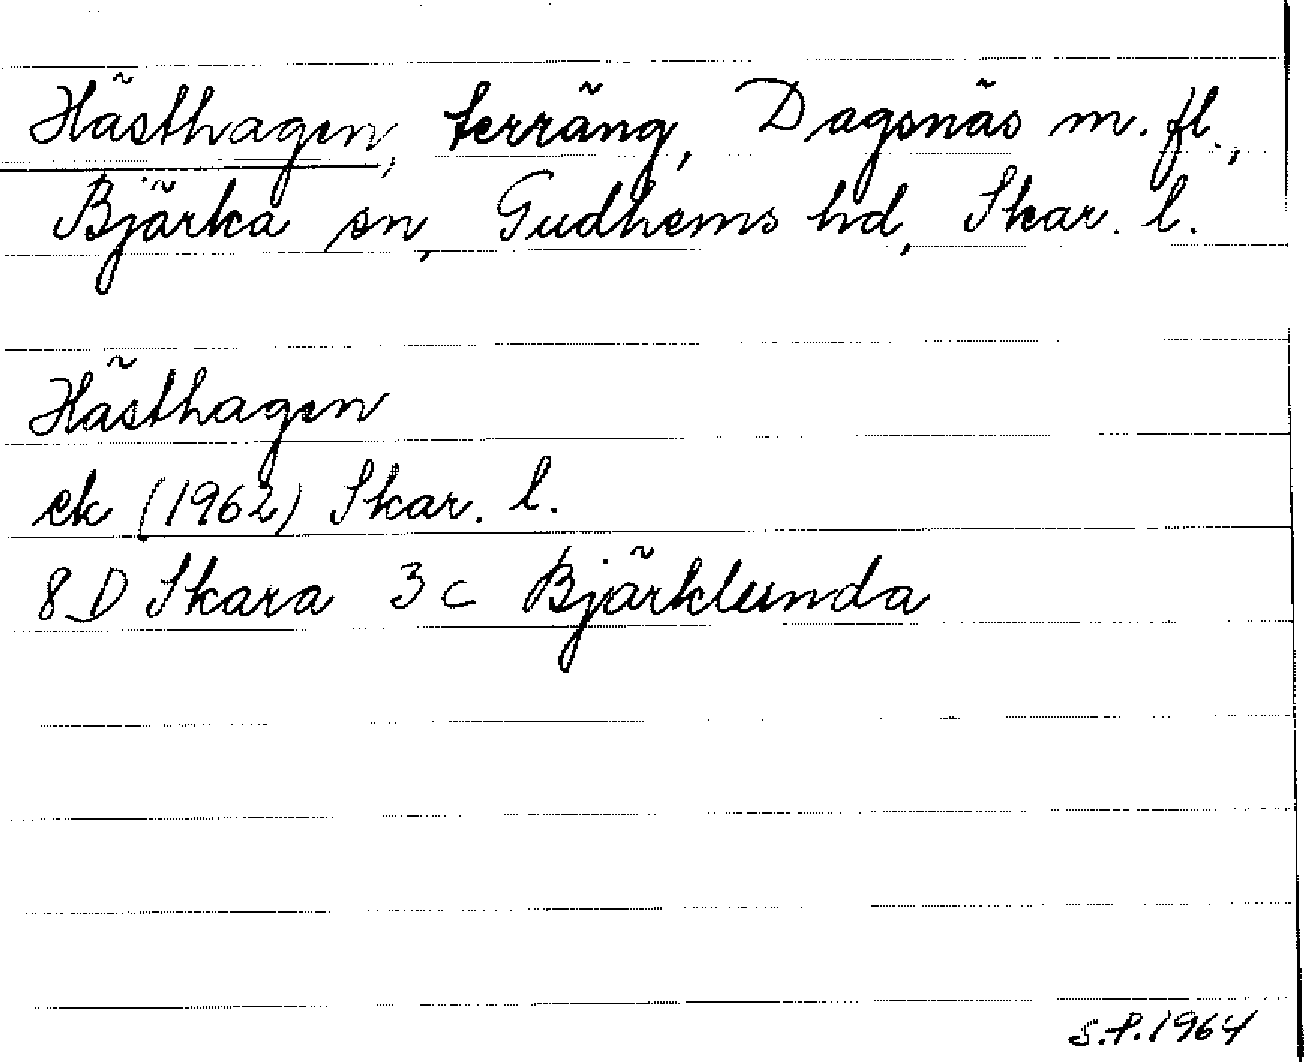 Hästhagen, terräng, Dagsnäs m. fl.,
Bjärka sn, Gudhems hd, Skar. l.
Hästhagen
ek (1962) Skar. l.
8 D Skara 3 c Bjärklunda
S.P. 1964